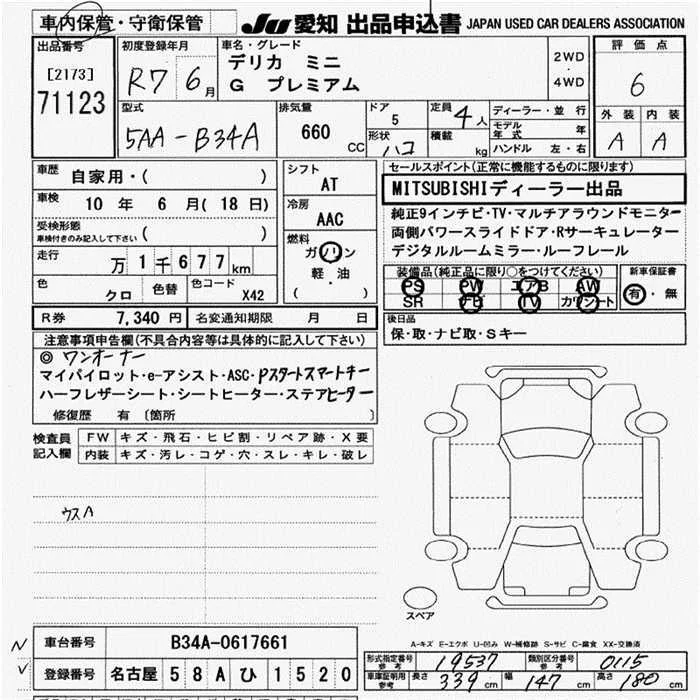 車内保管・守衛保管
JU 愛知 出品申込書 JAPAN USED CAR DEALERS ASSOCIATION
出品番号
[2173]
71123
初度登録年月
R7 6月
車名・グレード
デリカ ミニ
G プレミアム
2WD
・
4WD
評価点
6
外装 内装
A A
型式
5AA-B34A
排気量
660 CC
ドア
5
形状
ハコ
定員 4人
積載 kg
ディーラー・並行
モデル年式 年
ハンドル 左・右
車歴
自家用・( )
車検
10 年 6 月( 18 日)
受検形態
車検付きのみ記入して下さい ( )
走行
万 1 千 6 7 7 km
色
クロ
色替
色コード
X42
シフト
AT
冷房
AAC
燃料
ガソリン
軽・油
( )
セールスポイント(正常に機能するものに限ります)
MITSUBISHIディーラー出品
純正9インチナビ・TV・マルチアラウンドモニター
両側パワースライドドア・Rサーキュレーター
デジタルルームミラー・ルーフレール
装備品(純正品に限り○をつけてください)
PS PW エアB AW
SR ナビ TV カワシート
新車保証書
有・無
R券 7,340 円 名変通知期限 月 日
後日品
保・取・ナビ取・Sキー
注意事項申告欄(不具合内容等は具体的に記入して下さい)
◎ ワンオーナー
マイパイロット・e-アシスト・ASC・Pスタートスマートキー
ハーフレザーシート・シートヒーター・ステアヒーター
修復歴 有 〔箇所 〕
検査員記入欄
FW キズ・飛石・ヒビ割・リペア跡・X要
内装 キズ・汚レ・コゲ・穴・スレ・キレ・破レ
ウスハ
スペア
A-キズ E-エクボ U-凹み W-補修跡 S-サビ C-腐食 XX-交換済
車台番号 B34A-0617661
登録番号 名古屋 5 8 A ひ 1 5 2 0
型式指定番号 参考 19537 類別区分番号 参考 0115
車庫証明用 参考 長さ 339 cm 幅 147 cm 高さ 180 cm